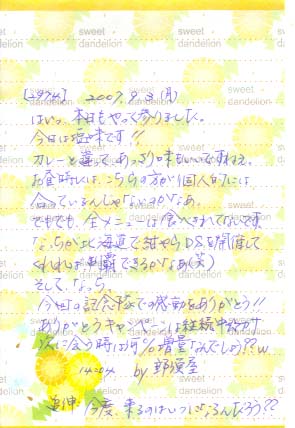 sweet dandelion
[2974] 2007.9.3 (月)
はいっ、本日もやって参りました。
今日は塩味です!!
カレーと違って、あっさり味もいいですねぇ。
お昼時には、こちらの方が個人的には
合っているんじゃないかなぁ。
でもでも、全メニューは食べきれてないです
なっちが北海道で DSを開催して
くれれば 制覇できるかなぁ(笑)
そして、なっち。
今日の記念 での感動をありがとう!!
ありがとうキャンペーンは継続中だけど
次に会う時は何%増量なんでしょう??w
14:04 by
追伸 今度、来るのはいつになるんだろう??